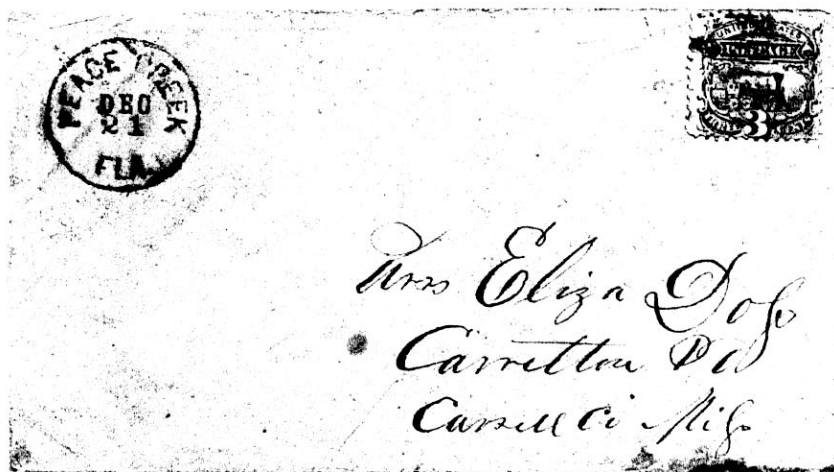 PEACE CREEK
DEC
21
FLA.
UNITED STATES
POSTAGE
3
Mrs Eliza Doss
Carrollton Po
Carroll Ci Miss